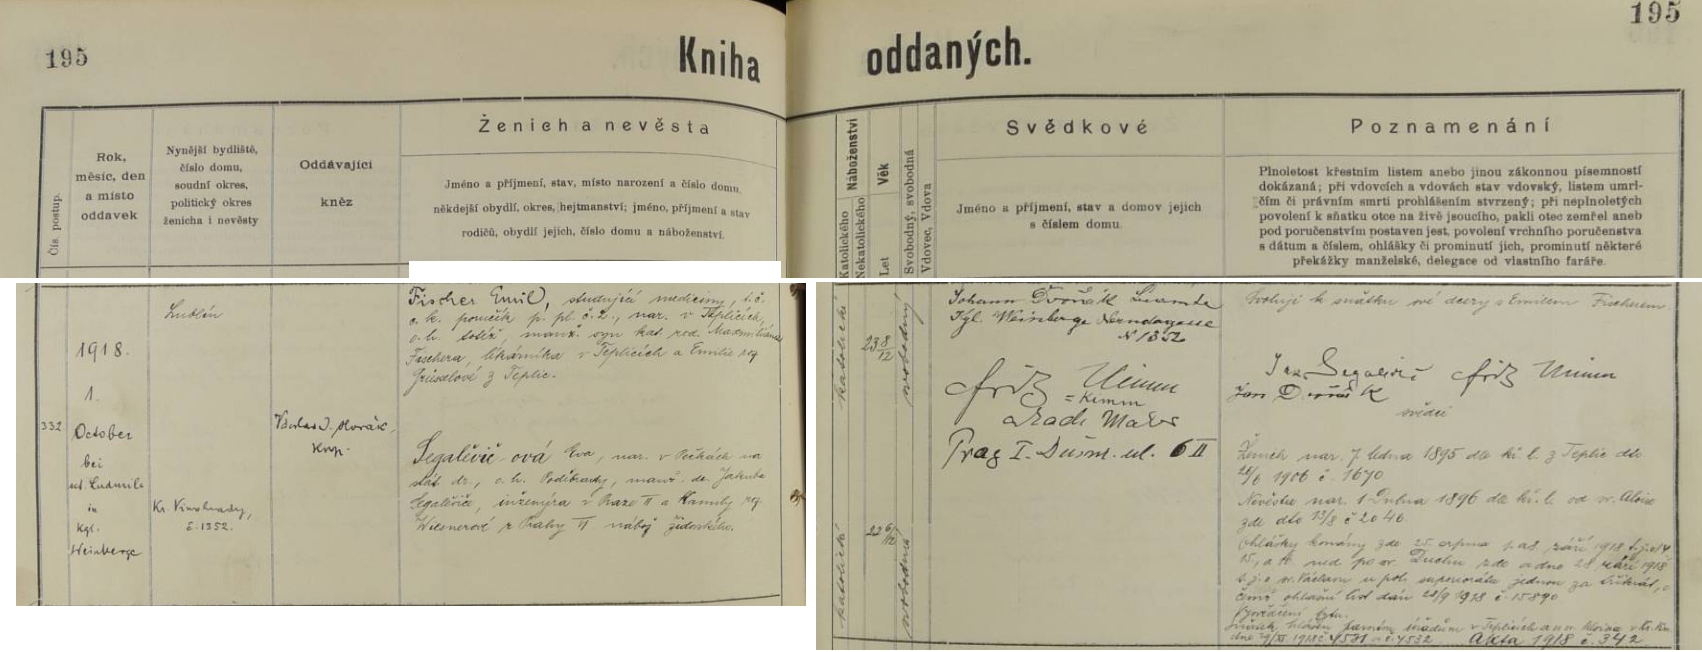 195
Kniha oddaných.
195
Čís. postup.
Rok,
měsíc, den
a místo
oddavek
Nynější bydliště,
číslo domu,
soudní okres,
politický okres
ženicha i nevěsty
Oddávající
kněz
Ženich a nevěsta
Jméno a příjmení, stav, místo narození a číslo domu,
někdejší obydlí, okres, hejtmanství; jméno, příjmení a stav
rodičů, obydlí jejich, číslo domu a náboženství.
Náboženství
Katolického
Nekatolického
Věk
Let
Svobodný, svobodná
Vdovec, Vdova
Svědkové
Jméno a příjmení, stav a domov jejich
s číslem domu.
Poznamenání
Plnoletost křestním listem anebo jinou zákonnou písemností
dokázaná; při vdovcích a vdovách stav vdovský, listem umrl-
čím či právním smrti prohlášením stvrzený; při neplnoletých
povolení k sňatku otce na živě jsoucího, pakli otec zemřel aneb
pod poručenstvím postaven jest, povolení vrchního poručenstva
s dátum a číslem, ohlášky či prominutí jich, prominutí některé
překážky manželské, delegace od vlastního faráře.
332
1918.
1.
October
bei
st. Ludmila
in
Kgl.
Weinberge
Lublín
Kr. Vinohrady,
č. 1352.
Horák,
Fischer Emil, studující medicíny, t. č.
c. k. poručík p. pl. č. nar. v Teplicích,
o. h. totéž, manž. syn kat. rod. Maxmiliána
Fischera, lékárníka v Teplicích a Emilie
z Teplic.
Segalěvič-ová Eva, nar. v Pečkách na
stát. dr., o. h. Poděbrady, manž. dc. Jakuba
Segaleviče, inženýra v Praze II a Kamily
Wiesnerové z Prahy II nábož. židovského.
katolické
23 8/12
svobodný
katolické
22 6/12
svobodná
Johann Dvořák
Kgl. Weinberge Nerudagasse
N 1352
Fritz
= Kimm
Prag I. Dušn. ul. 6 II
Svoluji k sňatku své dcery s Emilem Fischerem.
Segalevič Fritz
Jan Dvořák
svědci
Ženich nar. 7 ledna 1895 dle kř. l. z Teplic dto
1906 č. 1670
Nevěsta nar. 1. Dubna 1896 dle kř. l. od sv. Aloise
zde dto 13/8 č 2046
Ohlášky konány zde 25. srpna září 1918
15. a ned. po sv. Duchu zde a dne 28 září 1918
t. j. o sv. Václavu u pol. superiorátu jednou za třikrát,
čemž ohlašní list dán 28/9 1918 č. 15890
Sňatek hlášen farním úřadům v Teplicích a u sv. Aloise
1918 č. 4581 a č. 4532 Akta 1918 č. 342